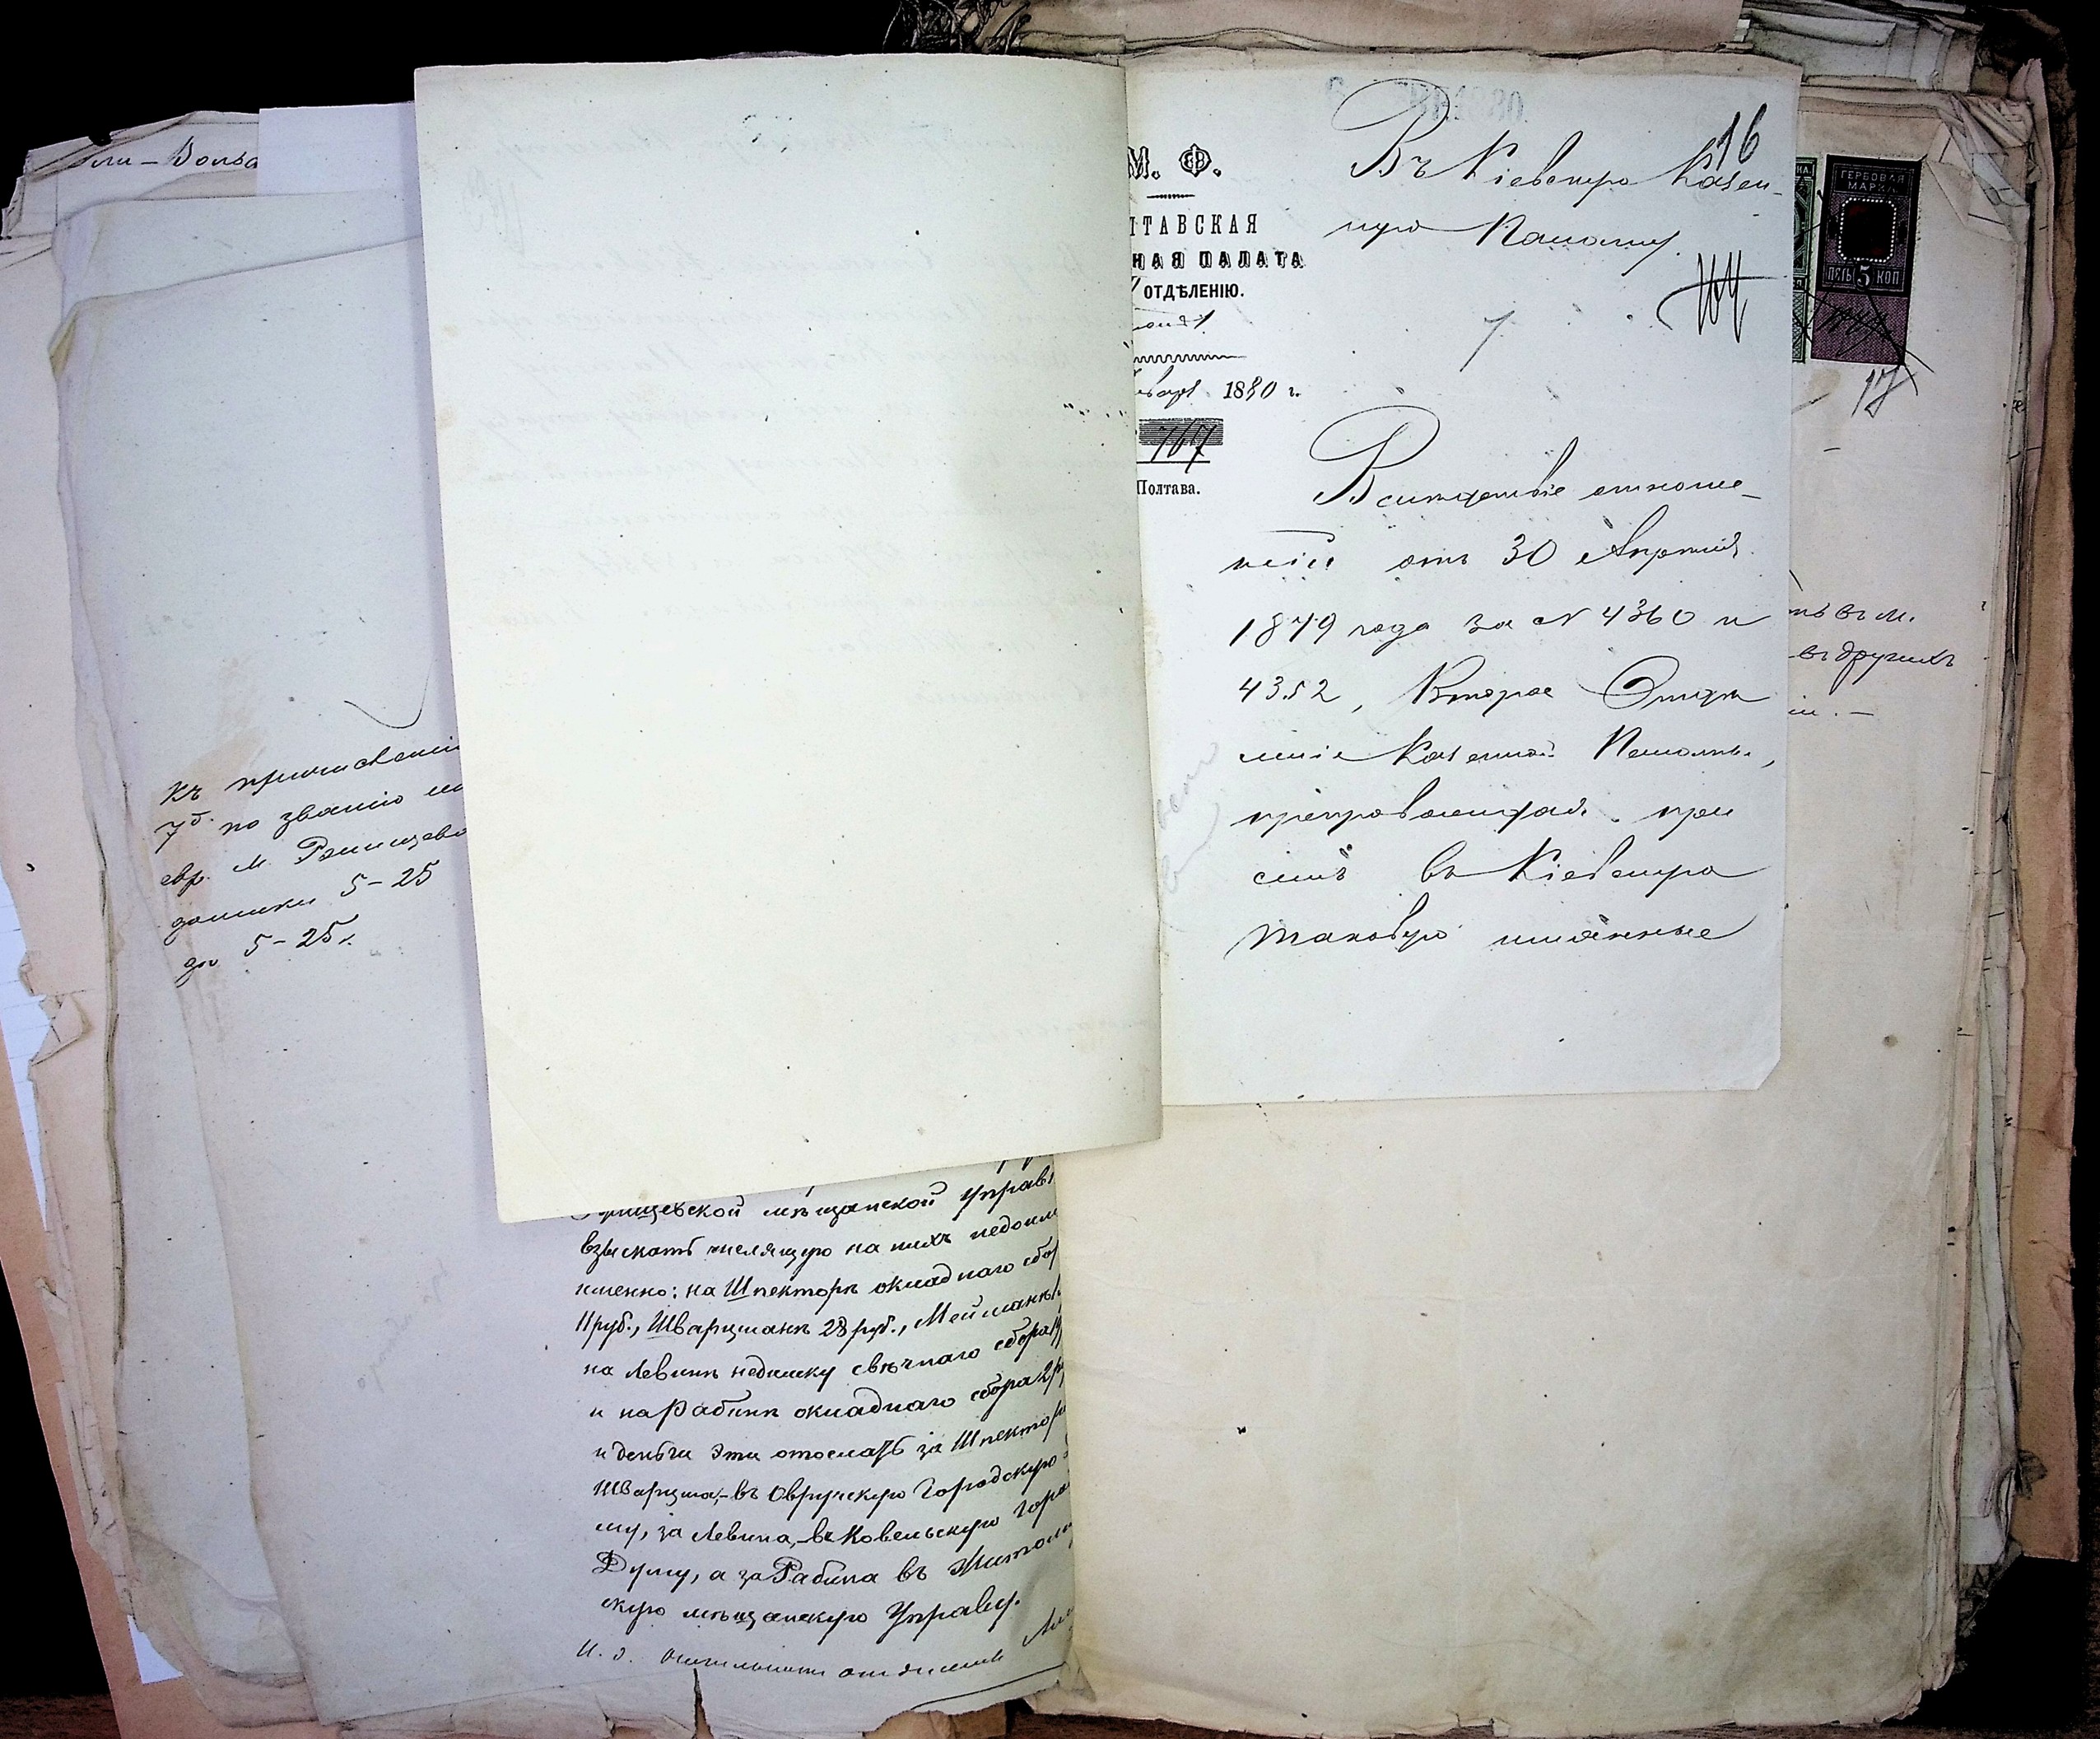 Вольфа
къ причисленію
7 д. по званію
евр. м. Ромнцево
доимки 5-25
до 5-25 к.
М. Ф.
ЛТАВСКАЯ
НАЯ ПАЛАТА
ОТДѢЛЕНІЮ.
варя 1880 г.
767
Полтава.
16
Въ Кіевскую Казен-
ную Палату.
7
Вслѣдствіе отноше-
нія отъ 30 Апрѣля
1879 года за № 4360 и
4352, Второе Отдѣ
леніе Казенной Палаты,
препровождая при
семъ въ Кіевскую
таковую имянные
ГЕРБОВАЯ
МАРКА
ПЯТЬ 5 КОП
17
въ м.
въ другихъ
мѣщанской Управ
взыскать числящую на нихъ недоим
именно: на Шпекторѣ окладнаго сбор
11 руб., Шварцманѣ 28 руб., Мейманѣ
на Левинѣ недоимку свѣчнаго сбора
и на Рабинѣ окладнаго сбора 2 р
и деньги эти отослать за Шпектор
Шварцма,- въ Овручскую Городскую
му, за Левина,- въ Ковельскую Горо
Думу, а за Рабина въ Житом
скую мѣщанскую Управу.
И. д. Начальника отдѣленія